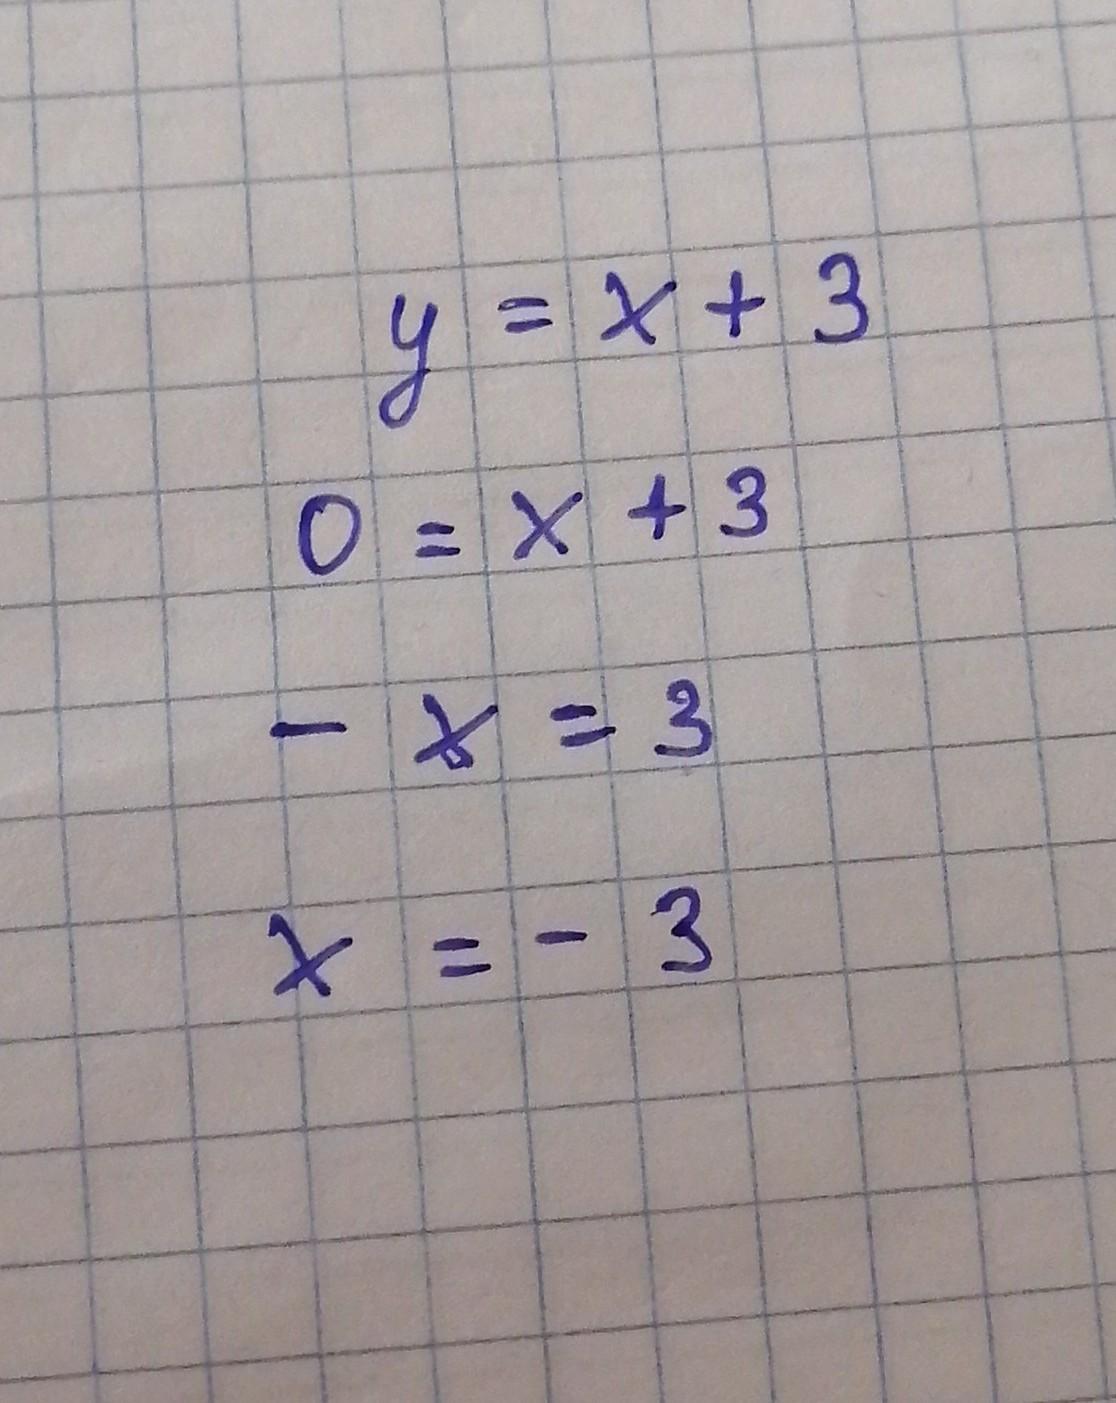 y = x + 3
0 = x + 3
- x = 3
x = - 3